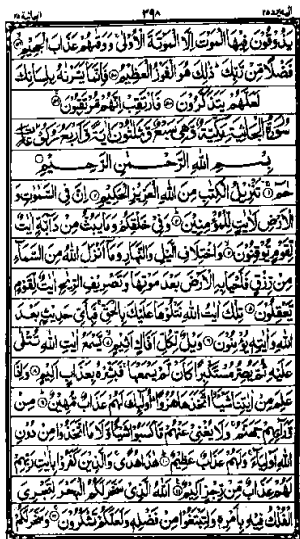 اليه يرد ٢٥ ٣٩٨ الجاثية ٤٥
يَذُوْقُوْنَ فِيْهَا الْمَوْتَ اِلَّا الْمَوْتَةَ الْاُوْلٰى وَوَقٰىهُمْ عَذَابَ الْجَحِيْمِ
فَضْلًا مِّنْ رَّبِّكَ ذٰلِكَ هُوَ الْفَوْزُ الْعَظِيْمُ فَاِنَّمَا يَسَّرْنٰهُ بِلِسَانِكَ
لَعَلَّهُمْ يَتَذَكَّرُوْنَ فَارْتَقِبْ اِنَّهُمْ مُّرْتَقِبُوْنَ
سُوْرَةُ الْجَاثِيَةِ مَكِّيَّةٌ وَّهِيَ سَبْعٌ وَّثَلٰثُوْنَ اٰيَةً وَّاَرْبَعُ رُكُوْعَاتٍ
بِسْمِ اللهِ الرَّحْمٰنِ الرَّحِيْمِ
حٰمٓ تَنْزِيْلُ الْكِتٰبِ مِنَ اللهِ الْعَزِيْزِ الْحَكِيْمِ اِنَّ فِي السَّمٰوٰتِ وَ
الْاَرْضِ لَاٰيٰتٍ لِّلْمُؤْمِنِيْنَ وَفِيْ خَلْقِكُمْ وَمَا يَبُثُّ مِنْ دَآبَّةٍ اٰيٰتٌ
لِّقَوْمٍ يُّوْقِنُوْنَ وَاخْتِلَافِ الَّيْلِ وَالنَّهَارِ وَمَآ اَنْزَلَ اللهُ مِنَ السَّمَآءِ
مِنْ رِّزْقٍ فَاَحْيَا بِهِ الْاَرْضَ بَعْدَ مَوْتِهَا وَتَصْرِيْفِ الرِّيٰحِ اٰيٰتٌ لِّقَوْمٍ
يَّعْقِلُوْنَ تِلْكَ اٰيٰتُ اللهِ نَتْلُوْهَا عَلَيْكَ بِالْحَقِّ فَبِاَيِّ حَدِيْثٍ بَعْدَ
اللهِ وَاٰيٰتِهٖ يُؤْمِنُوْنَ وَيْلٌ لِّكُلِّ اَفَّاكٍ اَثِيْمٍ يَّسْمَعُ اٰيٰتِ اللهِ تُتْلٰى
عَلَيْهِ ثُمَّ يُصِرُّ مُسْتَكْبِرًا كَاَنْ لَّمْ يَسْمَعْهَا فَبَشِّرْهُ بِعَذَابٍ اَلِيْمٍ وَاِذَا
عَلِمَ مِنْ اٰيٰتِنَا شَيْـًٔا اتَّخَذَهَا هُزُوًا اُولٰٓئِكَ لَهُمْ عَذَابٌ مُّهِيْنٌ مِنْ
وَّرَآئِهِمْ جَهَنَّمُ وَلَا يُغْنِيْ عَنْهُمْ مَّا كَسَبُوْا شَيْـًٔا وَّلَا مَا اتَّخَذُوْا مِنْ دُوْنِ
اللهِ اَوْلِيَآءَ وَلَهُمْ عَذَابٌ عَظِيْمٌ هٰذَا هُدًى وَالَّذِيْنَ كَفَرُوْا بِاٰيٰتِ رَبِّهِمْ
لَهُمْ عَذَابٌ مِّنْ رِّجْزٍ اَلِيْمٌ اَللهُ الَّذِيْ سَخَّرَ لَكُمُ الْبَحْرَ لِتَجْرِيَ
الْفُلْكُ فِيْهِ بِاَمْرِهٖ وَلِتَبْتَغُوْا مِنْ فَضْلِهٖ وَلَعَلَّكُمْ تَشْكُرُوْنَ وَسَخَّرَ لَكُمْ